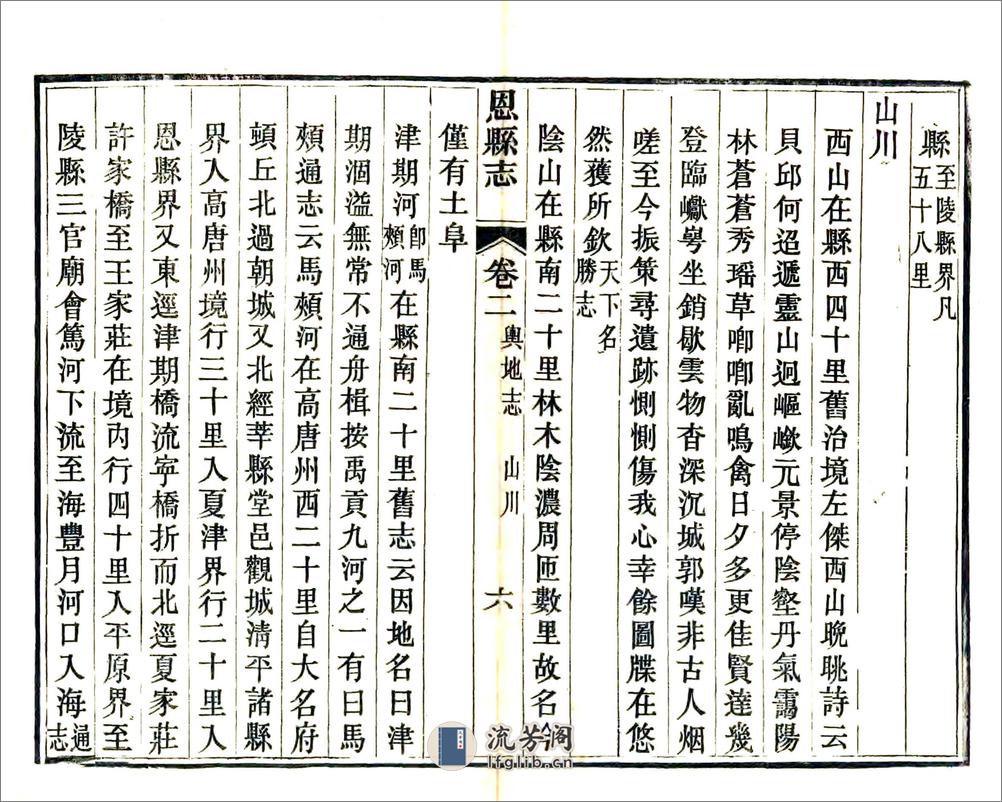 縣至陵縣界凡五十八里
山川
西山在縣西四十里舊治境左傑西山晚眺詩云
貝邱何迢遞靈山迥嶇嶔元景停陰壑丹氣靄陽
林蒼蒼秀瑤草喞喞亂鳴禽日夕多更佳賢達幾
登臨巘粵坐銷歇雲物杳深沉城郭嘆非古人烟
嗟至今振策尋遺跡惻惻傷我心幸餘圖牒在悠
然獲所欽天下名勝志
陰山在縣南二十里林木陰濃周匝數里故名今
恩縣志 卷二 輿地志 山川 六
僅有土阜
津期河卽馬頰河在縣南二十里舊志云因地名曰津
期涸溢無常不通舟楫按禹貢九河之一有曰馬
頰通志云馬頰河在高唐州西二十里自大名府
頓丘北過朝城又北經莘縣堂邑觀城淸平諸縣
界入高唐州境行三十里入夏津界行二十里入
恩縣界又東逕津期橋流寜橋折而北逕夏家莊
許家橋至王家莊在境內行四十里入平原界至
陵縣三官廟會篤河下流至海豐月河口入海通志
流芳阁
lfglib.cn